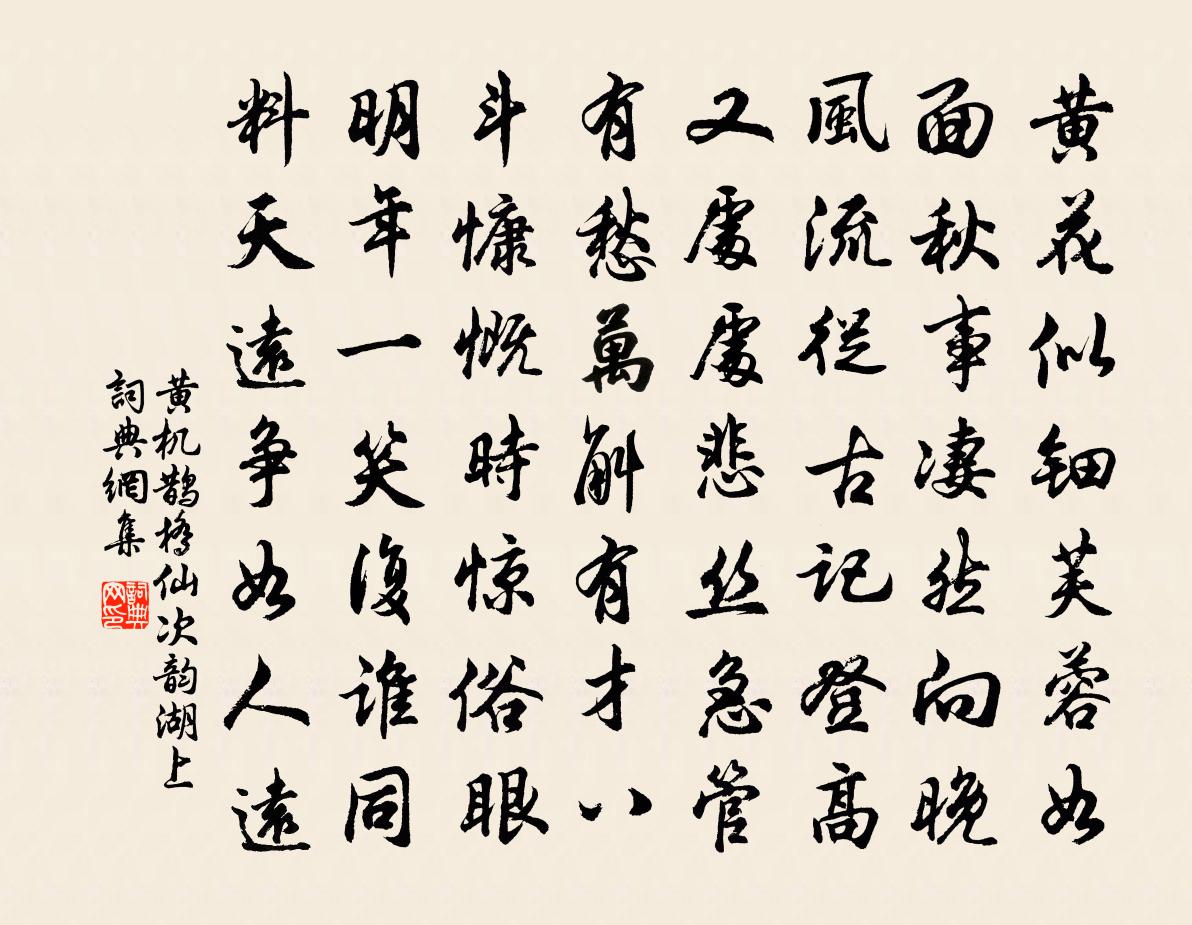 黄花似钿芙蓉如
面秋事凄然向晚
風流從古記登高
又處處悲丝急管
有愁萬斛有才八
斗慷慨時惊俗眼
明年一笑復谁同
料天遠争如人遠
黄机鹊橋仙次韵湖上
詞典網集
詞典网印